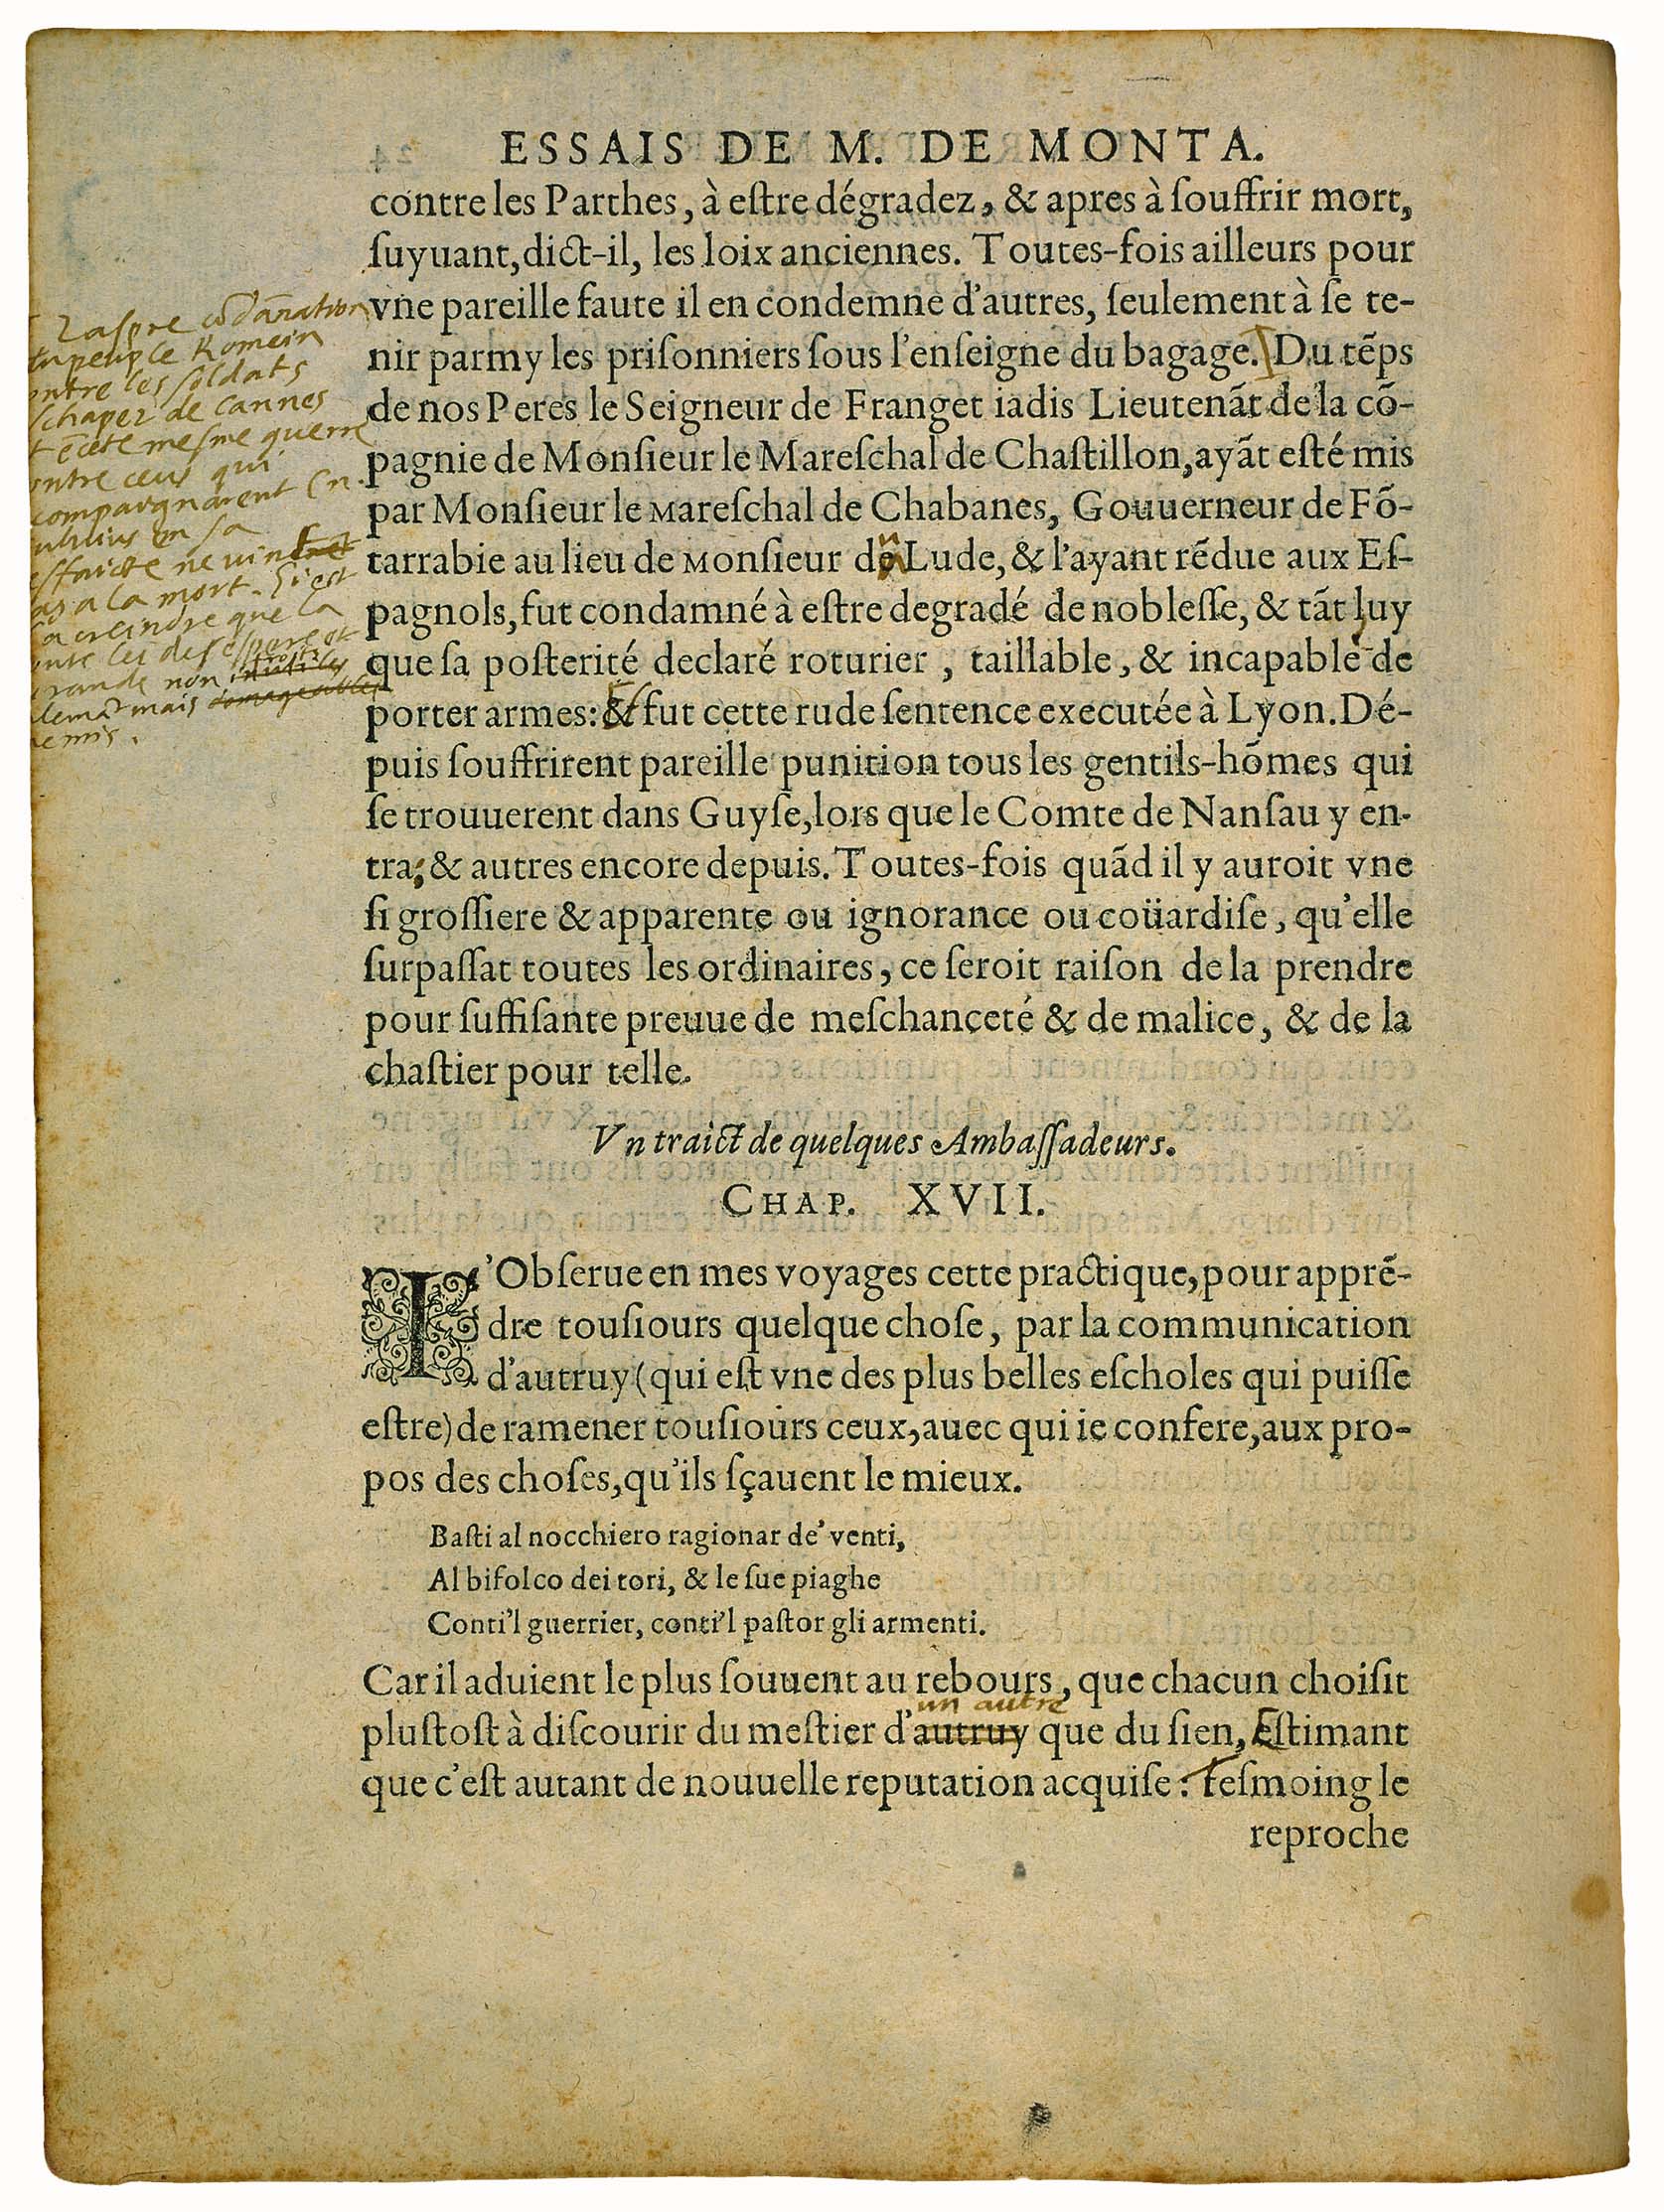 ESSAIS DE M. DE MONTA.
contre les Parthes, à eſtre dégradez, & apres à ſouffrir mort,
ſuyuant, dict-il, les loix anciennes. Toutes-fois ailleurs pour
vne pareille faute il en condemne d'autres, ſeulement à ſe te-
nir parmy les priſonniers ſous l'enſeigne du bagage. Du tẽps
de nos Peres le Seigneur de Franget iadis Lieutenãt de la cõ-
pagnie de Monſieur le Mareſchal de Chaſtillon, ayãt eſté mis
par Monſieur le Mareſchal de Chabanes, Gouuerneur de Fõ-
tarrabie au lieu de Monſieur du Lude, & l'ayant rẽdue aux Eſ-
pagnols, fut condamné à eſtre degradé de nobleſſe, & tãt luy
que ſa poſterité declaré roturier, taillable, & incapable de
porter armes: & fut cette rude ſentence executée à Lyon. Dé-
puis ſouffrirent pareille punition tous les gentils-hõmes qui
ſe trouuerent dans Guyſe, lors que le Comte de Nanſau y en-
tra; & autres encore depuis. Toutes-fois quãd il y auroit vne
ſi groſſiere & apparente ou ignorance ou coüardiſe, qu'elle
ſurpaſſat toutes les ordinaires, ce ſeroit raiſon de la prendre
pour ſuffiſante preuue de meſchanceté & de malice, & de la
chaſtier pour telle.
Laspre cõdãnation
peuple Romein
ntre les soldats
schapez de Cannes
t ẽ cete mesme guerre
ntre ceus qui
compaignarent Cn.
en sa
ffaicte ne vint
as a la mort. Si est
a creindre que la
nte les desespere et
rande non inutiles
mais domageables
nemis.
Vn traict de quelques Ambaſſadeurs.
CHAP. XVII.
I'Obſerue en mes voyages cette practique, pour apprẽ-
dre touſiours quelque choſe, par la communication
d'autruy (qui eſt vne des plus belles eſcholes qui puiſſe
eſtre) de ramener touſiours ceux, auec qui ie confere, aux pro-
pos des choſes, qu'ils ſçauent le mieux.
Baſti al nocchiero ragionar de' venti,
Al bifolco dei tori, & le ſue piaghe
Conti'l guerrier, conti'l paſtor gli armenti.
Car il aduient le plus ſouuent au rebours, que chacun choiſit
un autre
pluſtoſt à diſcourir du meſtier d'autruy que du ſien, Eſtimant
que c'eſt autant de nouuelle reputation acquiſe: teſmoing le
reproche